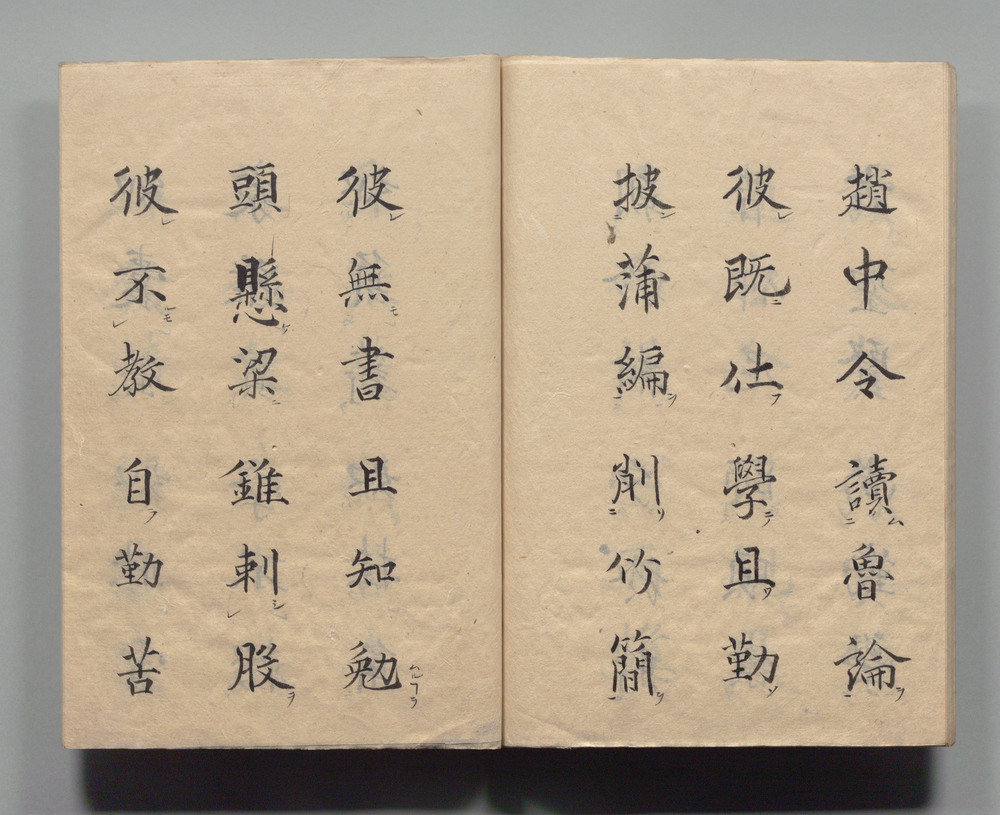 趙中令讀魯論
彼既仕學且勤
披蒲編削竹簡
彼無書且知勉
頭懸梁錐刺股
彼不教自勤苦